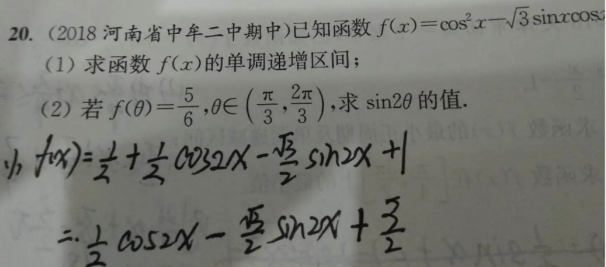 20. (2018 河南省中牟二中期中)已知函数 f(x)=cos²x−√3 sinxcosx
(1) 求函数 f(x) 的单调递增区间;
(2) 若 f(θ)=5/6, θ∈(π/3, 2π/3), 求 sin2θ 的值.
(1) f(x)=1/2+1/2 cos2x−√3/2 sin2x+1
=1/2 cos2x−√3/2 sin2x+3/2